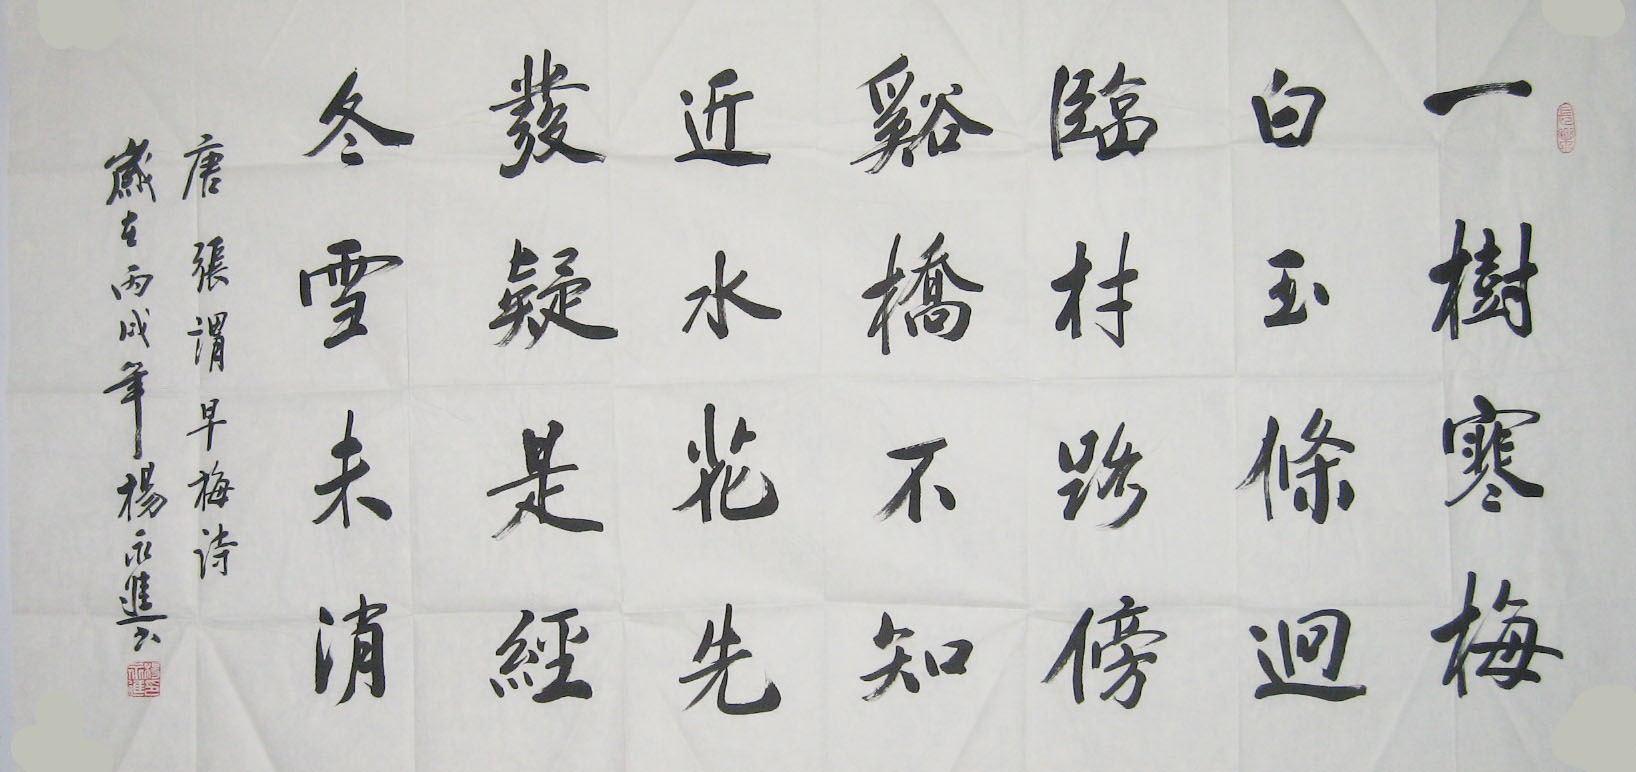 一樹寒梅
白玉條迥
臨村路傍
谿橋不知
近水花先
發疑是經
冬雪未消
唐 張謂早梅詩
歲在丙戌年楊永進书